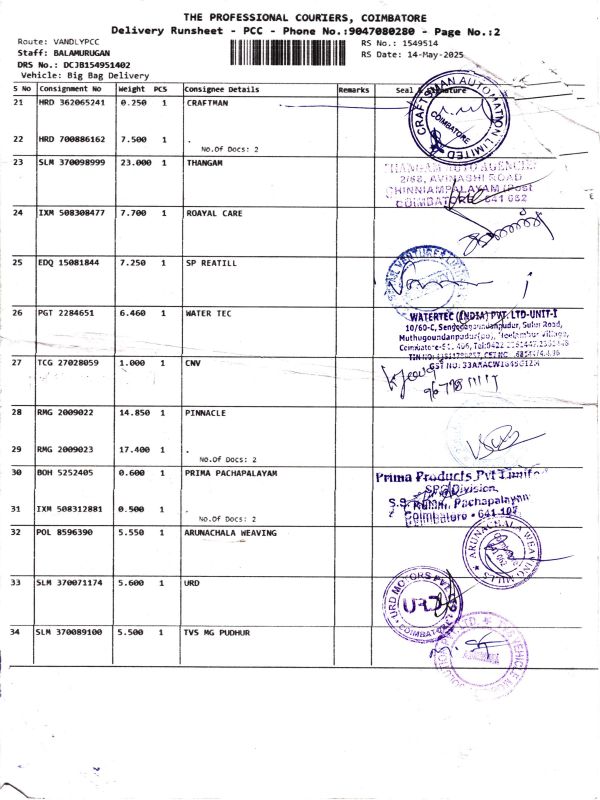 THE PROFESSIONAL COURIERS, COIMBATORE
Delivery Runsheet - PCC - Phone No.:9047080280 - Page No.:2
Route: VANDLYPCC
RS No.: 1549514
Staff: BALAMURUGAN
RS Date: 14-May-2025
DRS No.: DCJB154951402
Vehicle: Big Bag Delivery
S No Consignment No Weight PCS Consignee Details Remarks Seal & Signature
21 HRD 362065241 0.250 1 CRAFTMAN
CRAFTSMAN AUTOMATION LIMITED
COIMBATORE
22 HRD 700886162 7.500 1 .
No.Of Docs: 2
23 SLM 370098999 23.000 1 THANGAM
THANGAM AUTO AGENCIES
2/68, AVINASHI ROAD
CHINNIAMPALAYAM (Post
COIMBATORE 641 062
24 IXM 508308477 7.700 1 ROAYAL CARE
25 EDQ 15081844 7.250 1 SP REATILL
26 PGT 2284651 6.460 1 WATER TEC
WATERTEC (INDIA) PVT. LTD-UNIT-I
10/60-C, Sulur Road,
27 TCG 27028059 1.000 1 CNV
28 RMG 2009022 14.850 1 PINNACLE
29 RMG 2009023 17.400 1 .
No.Of Docs: 2
30 BOH 5252405 0.600 1 PRIMA PACHAPALAYAM
Prima Products Pvt Limite
SPG Division,
Pachapalayam
Coimbatore - 641 107
31 IXM 508312881 0.500 1 .
No.Of Docs: 2
32 POL 8596390 5.550 1 ARUNACHALA WEAVING
ARUNACHALA WEAVING MILLS
33 SLM 370071174 5.600 1 URD
URD MOTORS PVT
URD
COIMBATORE
34 SLM 370089100 5.500 1 TVS MG PUDHUR